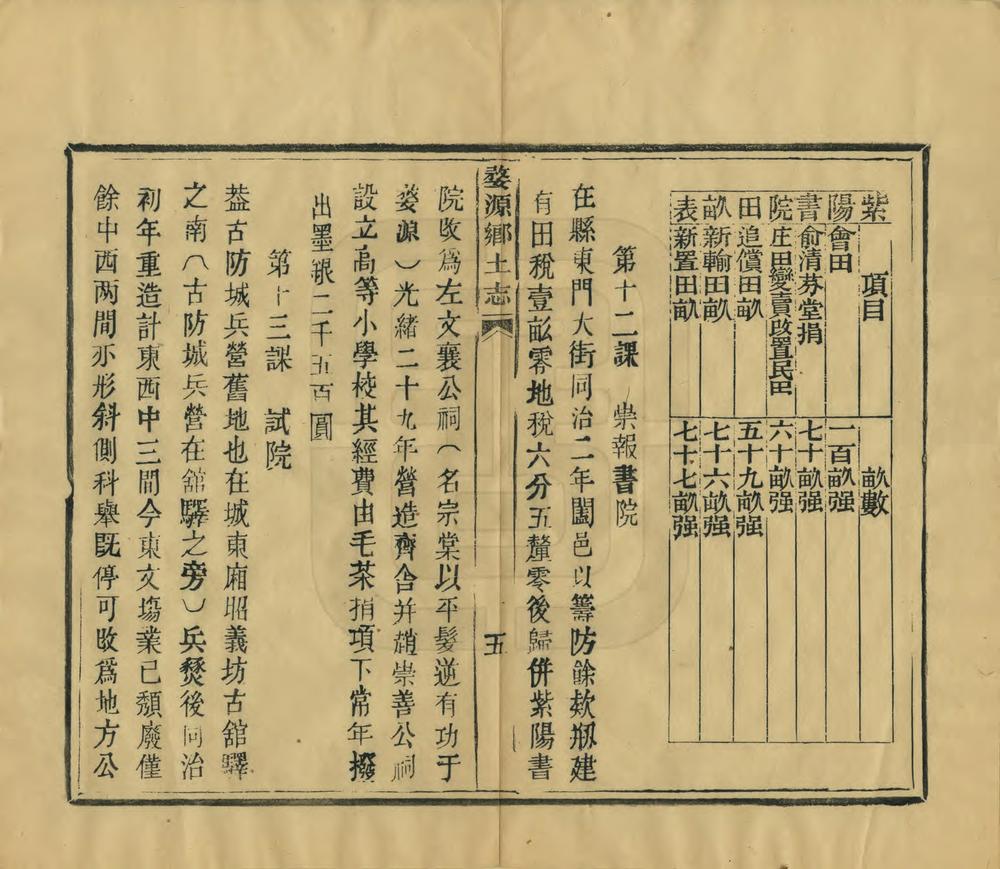 紫陽書院田畝表
項目 畝數
會田 一百畝强
俞清芬堂捐 七十畝强
庄田變賣改置民田 六十畝强
追償田畝 五十九畝强
新輸田畝 七十六畝强
新置田畝 七十七畝强
第十二課 崇報書院
在縣東門大街同治二年闔邑以籌防餘欵剏建
有田稅壹畝零地稅六分五釐零後歸併紫陽書
婺源鄉土志 五
院改爲左文襄公祠（名宗棠以平髮逆有功于
婺源）光緒二十九年營造齊舍并趙崇善公祠
設立高等小學校其經費由毛茶捐項下常年撥
出墨銀二千五百圓
第十三課 試院
葢古防城兵營舊地也在城東廂昭義坊古舘驛
之南（古防城兵營在舘驛之旁）兵燹後同治
初年重造計東西中三間今東文塲業已頽廢僅
餘中西两間亦形斜側科舉既停可改爲地方公